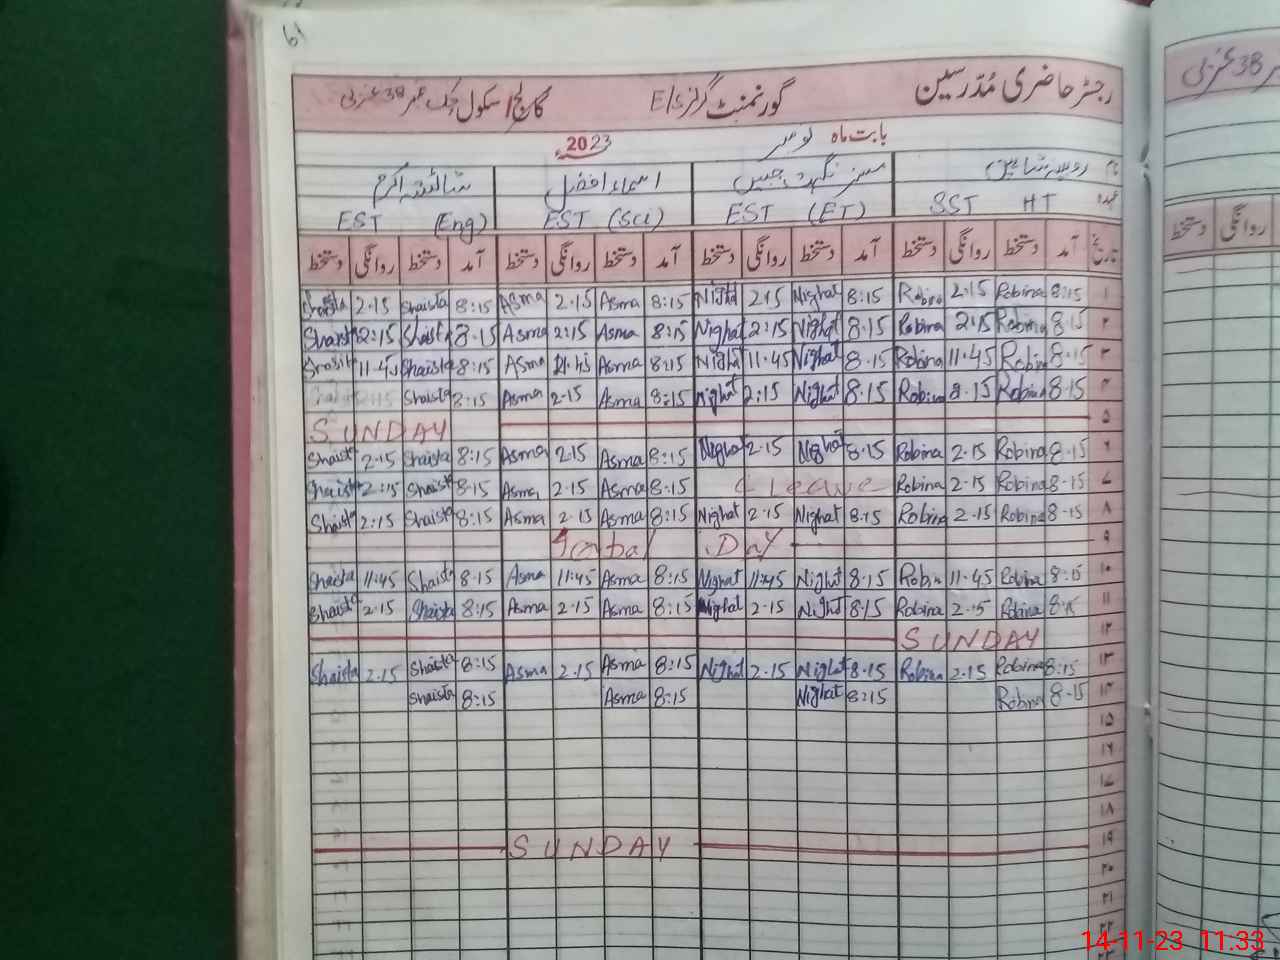 61
رجسٹر حاضری مُدرسین گورنمنٹ گرلز E/S کالج/اسکول چک نمبر 38 غربی
بابت ماہ نومبر 2023ء
نام روبینہ شاہین مسز نگہت جبیں اسماء افضل شائستہ اکرم
عہدہ SST HT EST (ET) EST (Sci) EST (Eng)
تاریخ آمد دستخط روانگی دستخط آمد دستخط روانگی دستخط آمد دستخط روانگی دستخط آمد دستخط روانگی دستخط
۱ 8:15 Robina 2.15 Robina 8:15 Nighat 2.15 Nighat 8:15 Asma 2.15 Asma 8:15 Shaista 2.15 Shaista
۲ 8.15 Robina 2:15 Robina 8.15 Nighat 2:15 Nighat 8:15 Asma 2:15 Asma 8.15 Shaista 2:15 Shaista
۳ 8.15 Robina 11.45 Robina 8.15 Nighat 11.45 Nighat 8:15 Asma Asma 8:15 Shaista 11.45
۴ 8.15 Robina 8.15 Robina 8.15 Nighat 2:15 Nighat 8:15 Asma 2.15 Asma 8:15 Shaista
۵ SUNDAY
۶ 8.15 Robina 2.15 Robina 8.15 Nighat 2.15 Nighat 8:15 Asma 2.15 Asma 8:15 Shaista 2.15 Shaista
۷ 8.15 Robina 2.15 Robina C Leave 8.15 Asma 2.15 Asma 8.15 Shaista 2:15 Shaista
۸ 8.15 Robina 2.15 Robina 8.15 Nighat 2.15 Nighat 8:15 Asma 2.15 Asma 8:15 Shaista 2:15 Shaista
۹ Iqbal Day
۱۰ 8:15 Robina 11.45 Robin 8.15 Nighat 11:45 Nighat 8:15 Asma 11:45 Asma 8.15 Shaista 11:45 Shaista
۱۱ 8.15 Robina 2.15 Robina 8.15 Nighat 2.15 Nighat 8:15 Asma 2.15 Asma 8:15 Shaista 2.15 Shaista
۱۲ SUNDAY
۱۳ 8:15 Robina 2.15 Robina 8.15 Nighat 2.15 Nighat 8:15 Asma 2.15 Asma 8:15 Shaista 2.15 Shaista
۱۴ 8.15 Robina 8:15 Nighat 8:15 Asma 8:15 Shaista
۱۵
۱۶
۱۷
۱۸
۱۹ SUNDAY
۲۰
۲۱
۲۲
۲۳
نمبر 38 غربی
روانگی دستخط
14-11-23 11.33